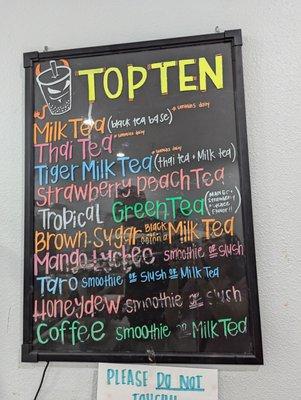 TOP TEN
Milk Tea (black tea base) * contains dairy
Thai Tea * contains dairy
Tiger Milk Tea (thai tea + milk tea)
Strawberry Peach Tea
Tropical Green Tea (mango + strawberry + lychee flavor!!)
Brown Sugar Black Milk Tea
Mango Lychee smoothie or slush
Taro smoothie or slush or Milk Tea
Honeydew smoothie or slush
Coffee smoothie or Milk Tea
PLEASE DO NOT
TOUCH!